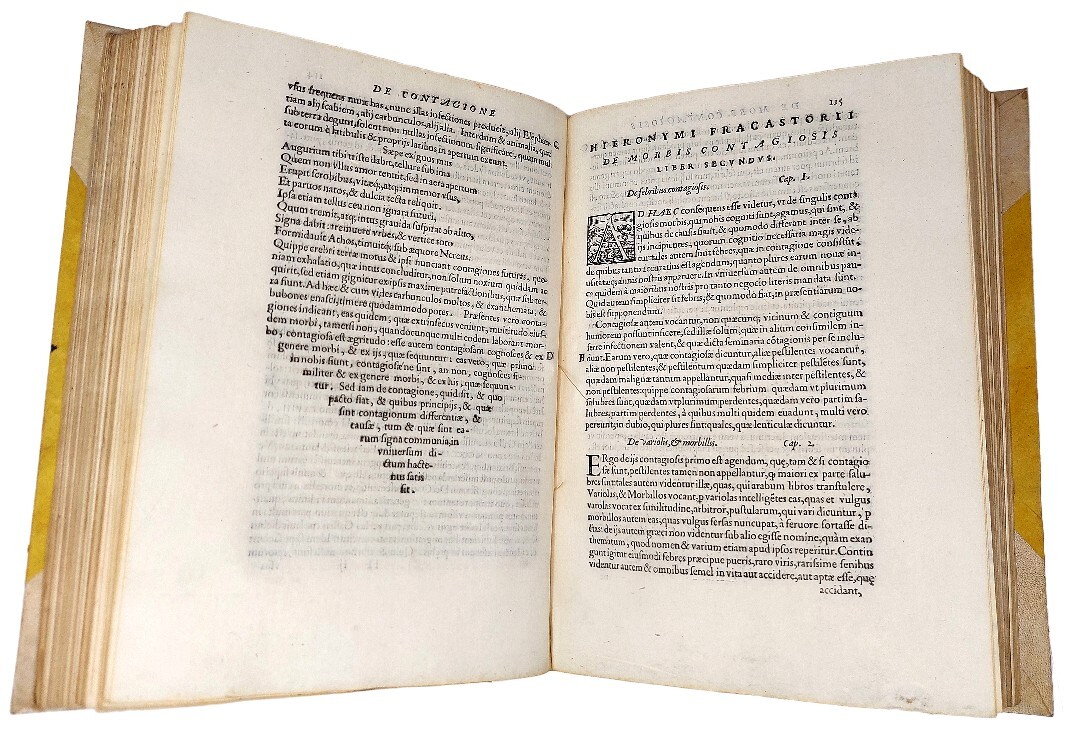 DE CONTAGIONE
vsus frequens nunc has, nunc illas infectiones producit, alij Elephan-
tiam alij scabiem, alij carbunculos, alij alia. Interdum & animalia, quæ
subterra degunt, solent non nullas infectionum significare, quum mul-
ta eorum è latibulis & proprijs laribus in apertum exeunt.
Sæpe exiguus mus
Augurium tibi triste dabit, tellure sub ima
Quem non vllus amor tenuit, sed in aera apertum
Erupit scrobibus, vitæq; atq; immemor vsus,
Et paruos natos, & dulcia tecta reliquit.
Ipsa etiam tellus ceu non ignara futuri,
Quum tremit, atq; intus grauida suspirat ab aluo,
Signa dabit: tremuere vrbes, & vertice toto
Formidauit Athos, timuitq; sub æquore Nereus.
Quippe crebri terræ motus & ipsi nunciant contagiones futuras, quo-
niam exhalatio, quæ intus concluditur, non solum noxium quiddam ac
quirit, sed etiam gignitur ex ipsis maxime putrefactionibus, quæ subter-
ra sunt. Ad hæc & cum vides carbunculos multos, & exanthemata, &
bubones enasci, timere quodammodo potes. Præsentes vero conta-
giones indicant, eas quidem, quæ extrinsecus veniunt, multitudo eius-
dem morbi, tametsi non, quandocunque multi eodem laborant mor-
bo, contagiosa est ægritudo: esse autem contagiosam cognosces & ex D
genere morbi, & ex ijs, quæ sequuntur: eas vero, quæ primum
in nobis fiunt, contagiosæ ne sint, an non, cognosces si-
militer & ex genere morbi, & ex his, quæ sequun-
tur. Sed iam de contagione, quid sit, & quo
pacto fiat, & quibus principijs, & quæ
sint contagionum differentiæ, &
causæ, tum & quæ sint ea-
rum signa communia, in
vniuersum di-
ctum hacte-
nus satis
sit.
115
HIERONYMI FRACASTORII
DE MORBIS CONTAGIOSIS
LIBER SECVNDVS.
De febribus contagiosis. Cap. I.
AD HAEC consequens esse videtur, vt de singulis conta
giosis morbis, qui nobis cogniti sunt, agamus, qui sint, &
quibus de causis fiant, & quomodo differant inter se, ab
ijs incipientes, quorum cognitio necessaria magis vide-
tur: tales autem sunt febres, quæ in contagione consistunt,
de quibus tanto accuratius est agendum, quanto plures earum nouæ in-
usitatæq; annis nostris apparuere. In vniuersum autem de omnibus pau-
ca quidem à maioribus nostris pro tanto negocio literis mandata sunt.
Quid autem simpliciter sit febris, & quomodo fiat, in præsentiarum no-
bis est supponendum.
Contagiosæ autem vocantur, non quæcunq; vicinum & contiguum
humorem possunt inficere, sed illæ solum, quæ in alium consimilem in-
ferre infectionem valent, & quæ dicta seminaria cōtagionis per se inclu
B dunt. Earum vero, quæ contagiosæ dicuntur, aliæ pestilentes vocantur,
aliæ non pestilentes, & pestilentum quædam simpliciter pestilētes sunt,
quædam malignæ tantum appellantur, quasi mediæ inter pestilentes, &
non pestilentes: quippe contagiosarum febrium quædam vt plurimum
salubres sunt, quædam vt plurimum perdentes, quædam vero partim sa-
lubres, partim perdentes, à quibus multi quidem euadunt, multi vero
pereunt, in dubio, qui plures sint, quales, quæ lenticulæ dicuntur.
De variolis, & morbillis. Cap. 2.
ERgo de ijs contagiosis primo est agendum, quę, tam & si contagio
sæ sunt, pestilentes tamen non appellantur, ꝙ maiori ex parte salu-
bres sint: tales autem videntur illæ, quas, qui arabum libros transtulere,
Variolas, & Morbillos vocant, p variolas intelligētes eas, quas et vulgus
varolas vocat ex similitudine, arbitror, pustularum, qui vari dicuntur, p
morbillos autem eas, quas vulgus fersas nuncupat, à feruore fortasse di-
ctas: de ijs autem græci non videntur sub alio egisse nomine, quàm exan
thematum, quod nomen & varium etiam apud ipsos reperitur. Contin
gunt igitur eiusmodi febres præcipue pueris, raro viris, rarissime senibus
videntur autem & omnibus semel in vita aut accidere, aut aptæ esse, quę
accidant,